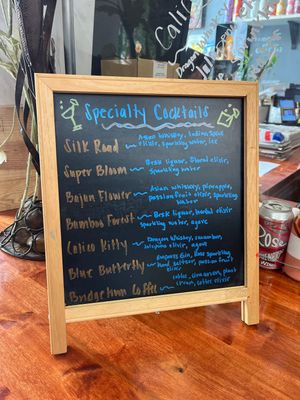 Calico
Specialty Cocktails
Silk Road ~ Asian Whiskey, Indian Spice
elixir, sparkling water, ice
Super Bloom ~ Base liquor, floral elixir,
sparkling water
Bajan Flower ~ Asian whiskey, pineapple,
passion fruit elixir, sparkling
water
Bamboo Forest ~ Base liquor, herbal elixir
sparkling water, agave
Calico Kitty ~ Dragon Whiskey, cucumber,
Jalapeno elixir, agave
Blue Butterfly ~ Gin, Rose sparkling
hard seltzer, passion fruit
elixir
Coffee ~ cinnamon, plant
cream, coffee elixir
Rose